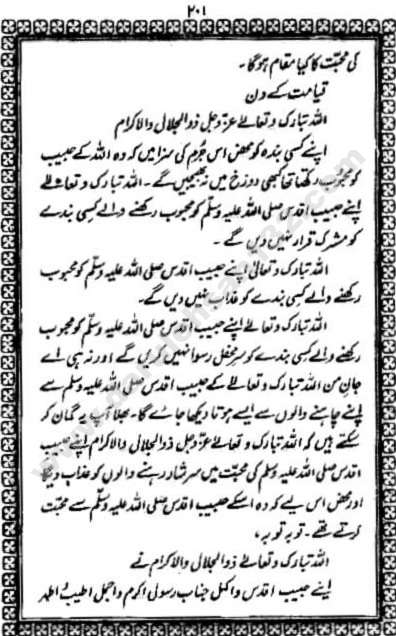 ۲۰۱
کی محبّت کا کیا مقام ہوگا۔
قیامت کے دن
اللہ تبارک و تعالےٰ عزّوجل ذوالجلال والاکرام
اپنے کسی بندہ کو محض اس جرم کی سزا میں کہ وہ اللہ کے حبیب
کو محبوب رکھتا تھا کبھی دوزخ میں نہ بھیجیں گے۔ اللہ تبارک و تعالےٰ
اپنے حبیب اقدس صلی اللہ علیہ وسلّم کو محبوب رکھنے والے کسی بندے
کو مشرک قرار نہیں دیں گے۔
اللہ تبارک و تعالیٰ اپنے حبیب اقدس صلی اللہ علیہ وسلّم کو محبوب
رکھنے والے کسی بندے کو عذاب نہیں دیں گے۔
اللہ تبارک و تعالےٰ اپنے حبیب اقدس صلی اللہ علیہ وسلّم کو محبوب
رکھنے والے کسی بندے کو سرِ محفل رسوا نہیں کریں گے اور نہ ہی اے
جانِ من اللہ تبارک و تعالےٰ کے حبیب اقدس صلی اللہ علیہ وسلم سے
اپنے چاہنے والوں سے ایسے ہوتا دیکھا جائے گا۔ بھلا آپ یہ گمان کر
سکتے ہیں کہ اللہ تبارک و تعالےٰ عزّوجل ذوالجلال والاکرام اپنے حبیب
اقدس صلی اللہ علیہ وسلم کی محبّت میں سرشار رہنے والوں کو عذاب دیگا
اور محض اس لیے کہ وہ اسکے حبیب اقدس صلی اللہ علیہ وسلّم سے محبّت
کرتے تھے۔ توبہ توبہ،
اللہ تبارک و تعالےٰ ذوالجلال والاکرام نے
اپنے حبیب اقدس و اکمل جناب رسول اکرم و اجمل اطیب و اطہر